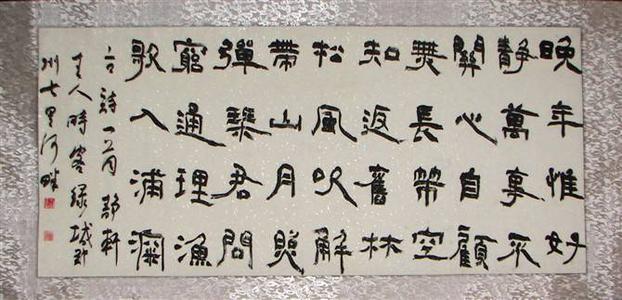 晚年惟好
静萬事不
關心自顧
無長策空
知返舊林
松風吹解
帶山月照
彈琴君問
窮通理漁
歌入浦深
古詩一首 靜軒
主人時客绿城郑
州七里河畔